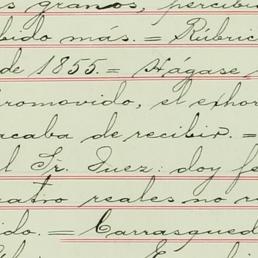 s granos, percibi
bido más. = Rúbric
de 1855. = Hágase
promovido, el exhor
acaba de recibir. =
l Sr. Juez: doy fe
uatro reales no r
ido. = Carrasqued